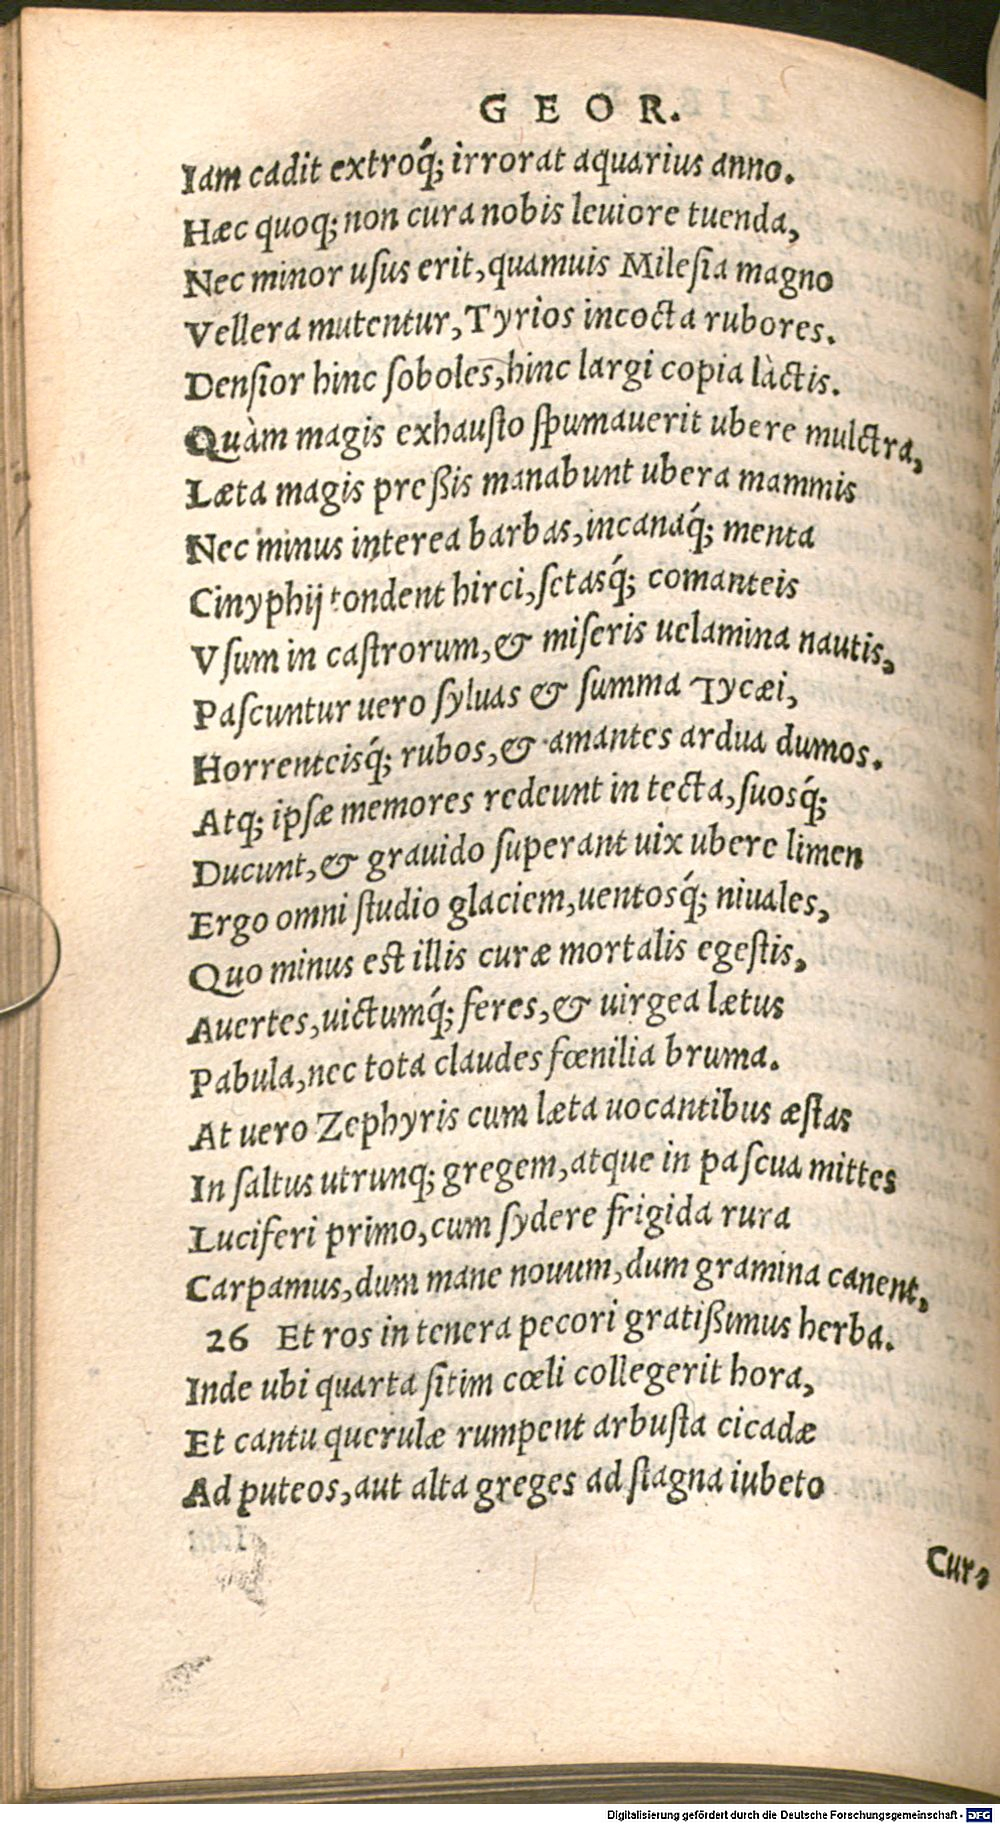 GEOR.
Iam cadit extroq́; irrorat aquarius anno.
Hæc quoq; non cura nobis leuiore tuenda,
Nec minor uſus erit, quamuis Mileſia magno
Vellera mutentur, Tyrios incocta rubores.
Denſior hinc ſoboles, hinc largi copia làctis.
Quàm magis exhauſto ſpumauerit ubere mulctra,
Læta magis preßis manabunt ubera mammis
Nec minus interea barbas, incanaq́; menta
Cinyphij tondent hirci, ſetasq́; comanteis
Vſum in caſtrorum, & miſeris uelamina nautis,
Paſcuntur uero ſyluas & ſumma Lycæi,
Horrenteisq́; rubos, & amantes ardua dumos.
Atq; ipſæ memores redeunt in tecta, ſuosq́;
Ducunt, & grauido ſuperant uix ubere limen
Ergo omni ſtudio glaciem, uentosq́; niuales,
Quo minus est illis curæ mortalis egeſtis,
Auertes, uictumq́; feres, & uirgea lætus
Pabula, nec tota claudes fœnilia bruma.
At uero Zephyris cum læta uocantibus æſtas
In ſaltus utrunq; gregem, atque in paſcua mittes
Luciferi primo, cum ſydere frigida rura
Carpamus, dum mane nouum, dum gramina canent,
26 Et ros in tenera pecori gratißimus herba.
Inde ubi quarta ſitim cœli collegerit hora,
Et cantu querulæ rumpent arbuſta cicadæ
Ad puteos, aut alta greges ad ſtagna iubeto
Cur,
Digitalisierung gefördert durch die Deutsche Forschungsgemeinschaft - DFG